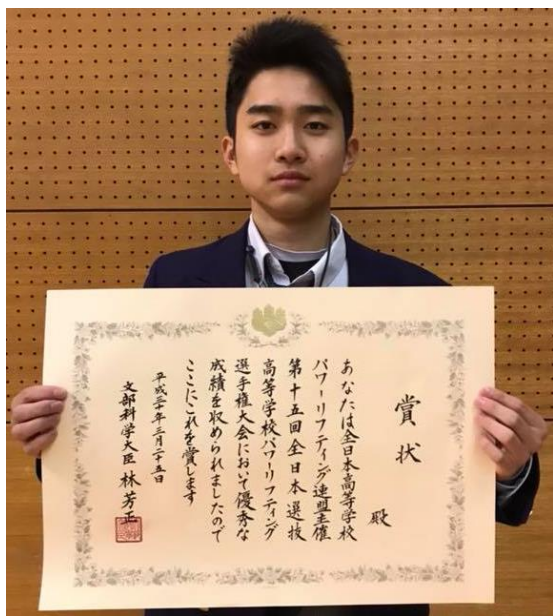 賞状
殿
あなたは全日本高等学校
パワーリフティング連盟主催
第十五回全日本選抜
高等学校パワーリフティング
選手権大会において優秀な
成績を収められましたので
ここにこれを賞します
平成三十年三月二十五日
文部科学大臣 林芳正